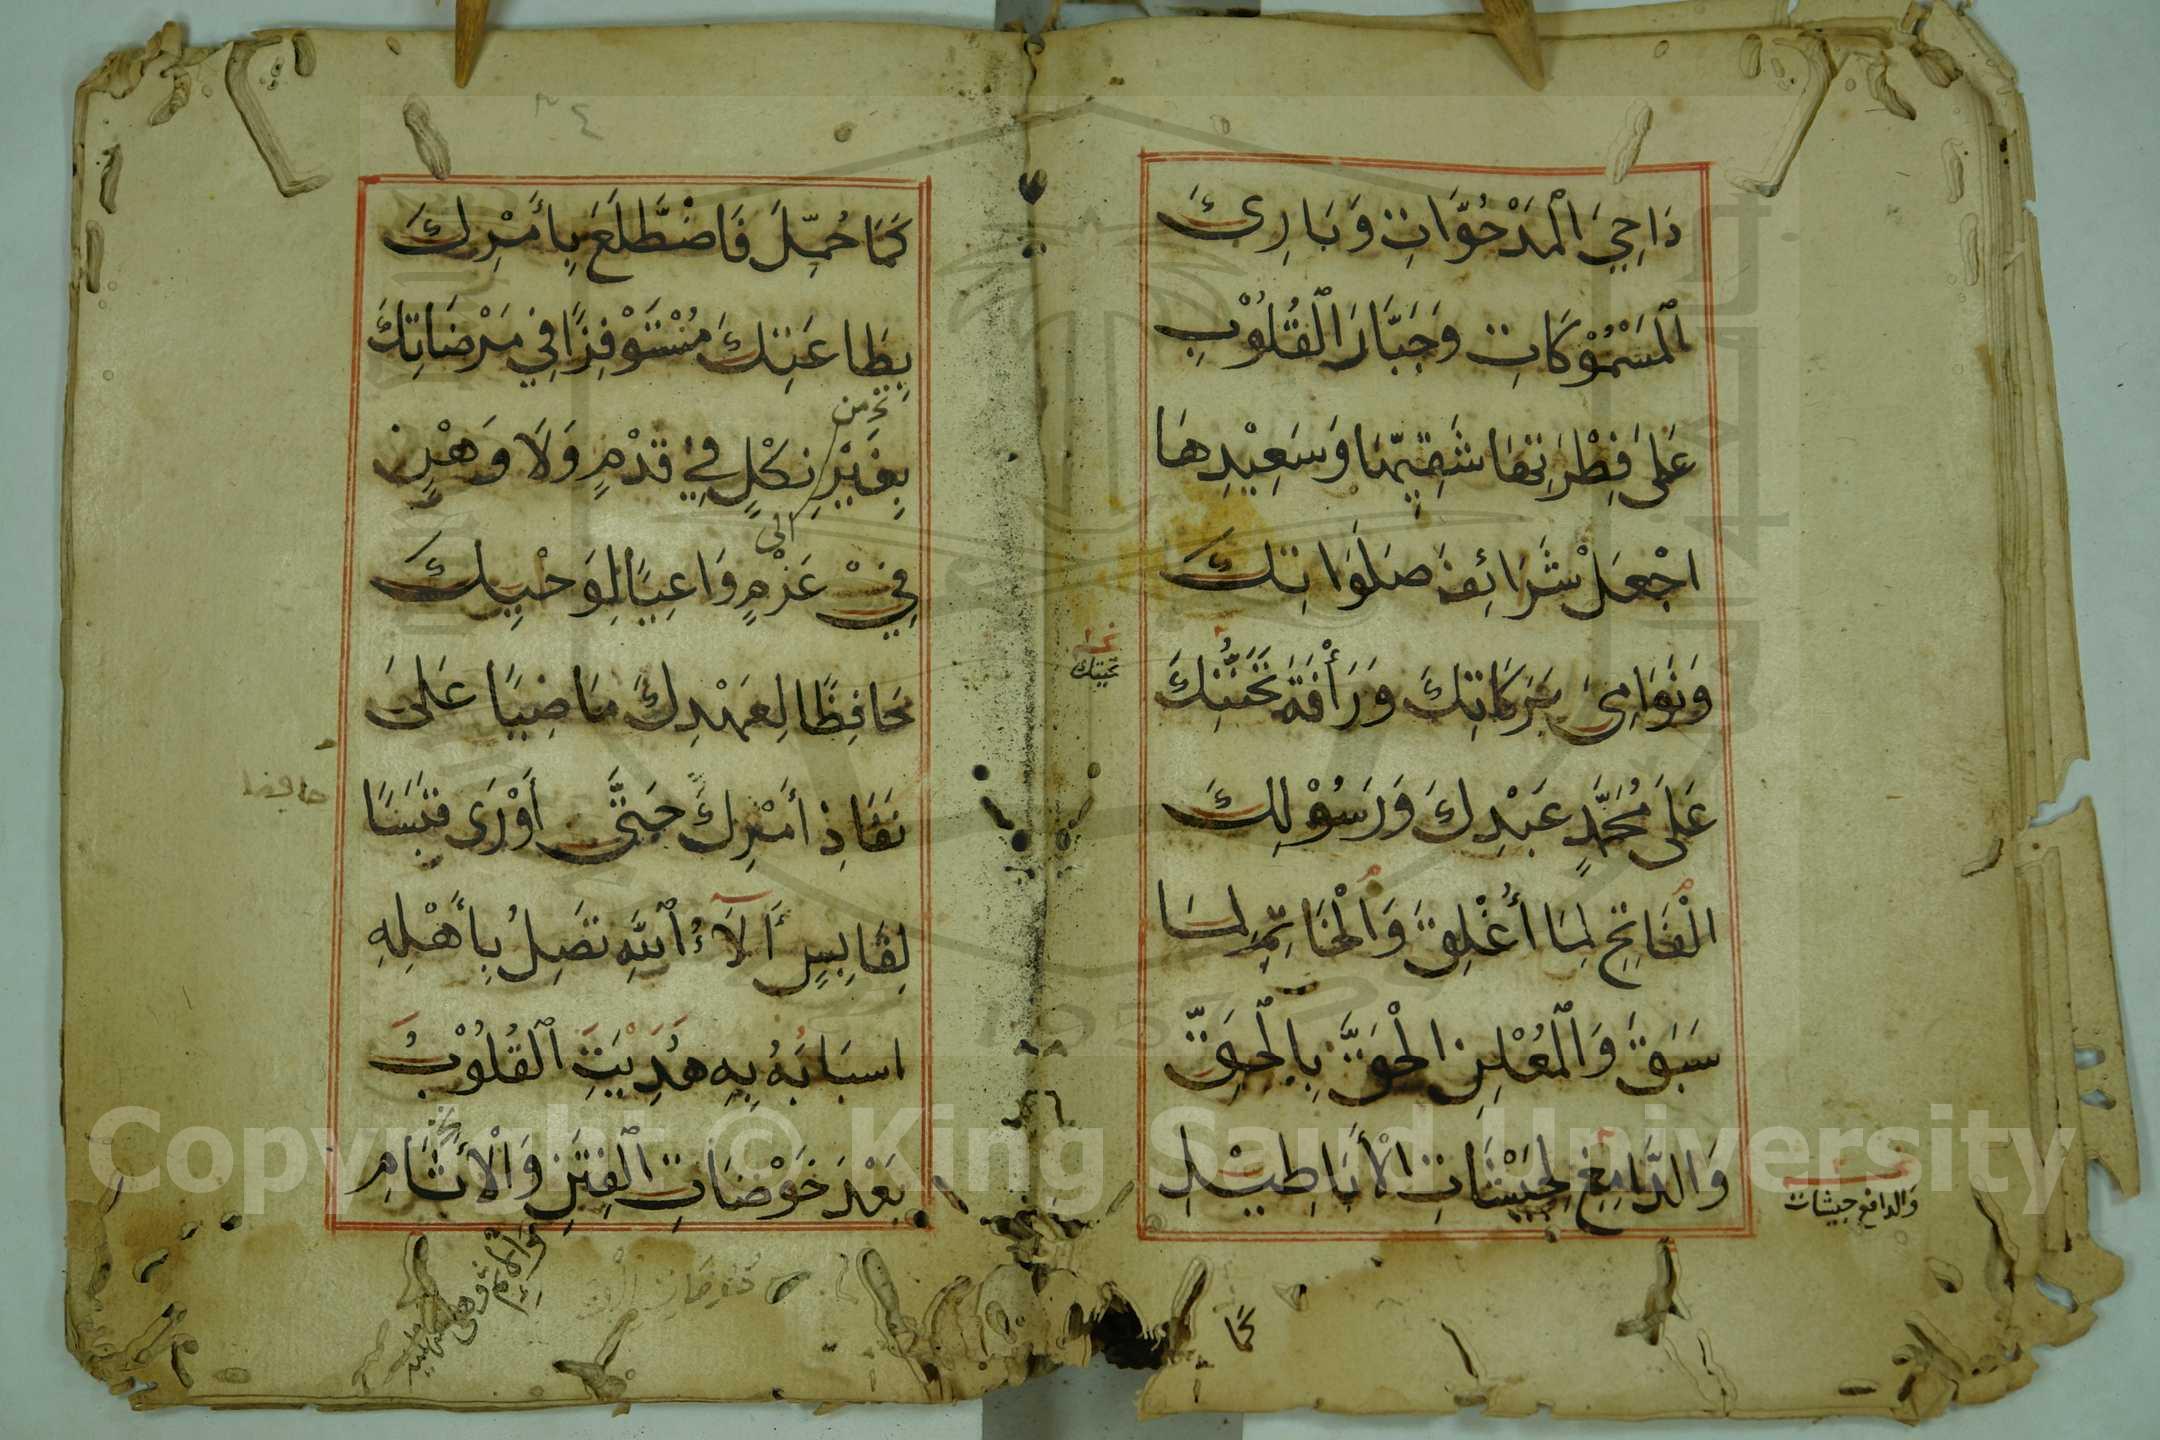 دَاحِيَ الْمَدْحُوَّاتِ وَبَارِئَ
الْمَسْمُوْكَاتِ وَجَبَّارَ الْقُلُوْبِ
عَلَى فِطْرَتِهَا شَقِيِّهَا وَسَعِيْدِهَا
اجْعَلْ شَرَائِفَ صَلَوَاتِكَ
وَنَوَامِىَ بَرَكَاتِكَ وَرَأْفَةَ تَحَنُّنِكَ
تحيتك
عَلَى مُحَمَّدٍ عَبْدِكَ وَرَسُوْلِكَ
الْفَاتِحِ لِمَا أُغْلِقَ وَالْخَاتِمِ لِمَا
سَبَقَ وَالْمُعْلِنِ الْحَقَّ بِالْحَقِّ
وَالدَّامِغِ لِجَيْشَاتِ الْأَبَاطِيْلِ
والدافع جيشات
كما
٣٤
كَمَا حُمِّلَ فَاضْطَّلَعَ بِأَمْرِكَ
بِطَاعَتِكَ مُسْتَوْفِزًا فِي مَرْضَاتِكَ
من
بِغَيْرِ نِكْلٍ فِيْ قَدْمٍ وَلَا وَهْنٍ
الى
فِيْ عَزْمٍ وَاعِيًا لِوَحْيِكَ
حَافِظًا لِعَهْدِكَ مَاضِيًا عَلَى
حافظا
نَفَاذِ أَمْرِكَ حَتَّى أَوْرَى قَبَسًا
لِقَابِسٍ أَلَآءُ اللهِ تَصِلُ بِأَهْلِهِ
اسبَابَهُ بِهِ هُدِيَتِ الْقُلُوْبُ
بَعْدَ خَوْضَاتِ الْفِتَنِ وَالْأَثَامِ
Copyright © King Saud University
1957